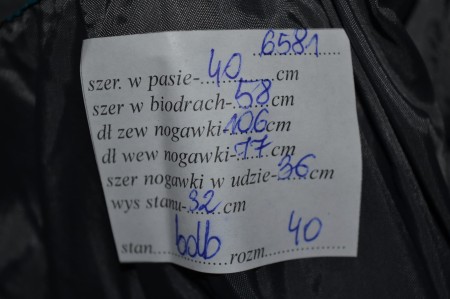 6581
szer. w pasie-40cm
szer w biodrach-58cm
dł zew nogawki-106cm
dł wew nogawki-77cm
szer nogawki w udzie-36cm
wys stanu-32cm
stan bdb rozm. 40